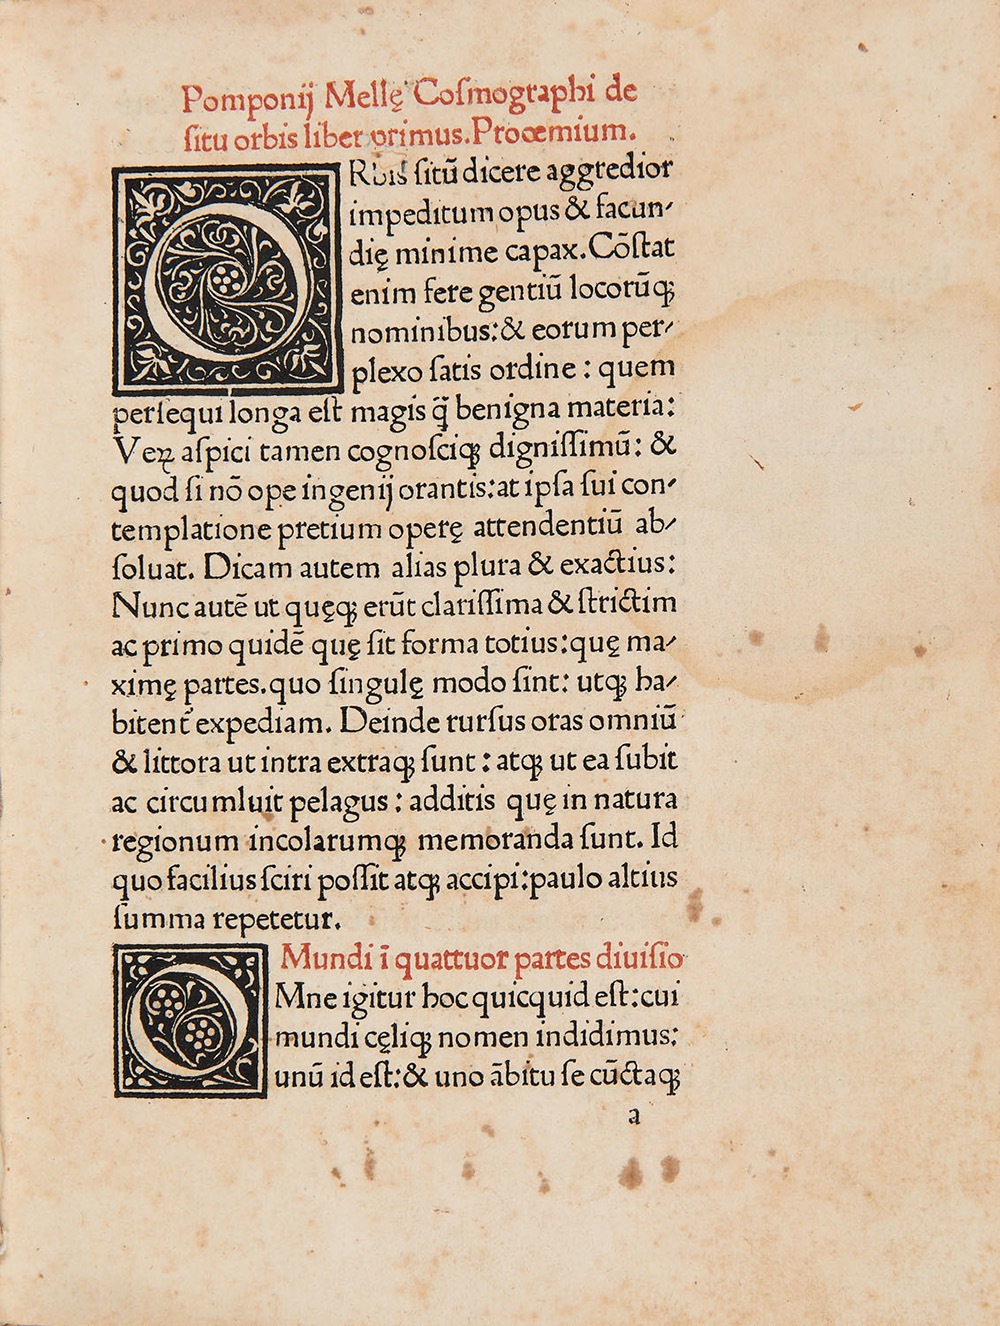 Pomponij Mellę Coſmographi de
ſitu orbis liber primus. Prooemium.
ORbis ſitū dicere aggredior
impeditum opus & facun⸗
dię minime capax. Cōſtat
enim fere gentiū locorūqꝫ
nominibus: & eorum per⸗
plexo ſatis ordine: quem
perſequi longa eſt magis q̄̃ benigna materia:
Veꝝ aſpici tamen cognoſciqꝫ digniſſimū: &
quod ſi nō ope ingenij orantis: at ipſa ſui con⸗
templatione pretium operę attendentiū ab⸗
ſoluat. Dicam autem alias plura & exactius:
Nunc autē ut quęqꝫ erūt clariſſima & ſtrictim
ac primo quidē quę ſit forma totius: quę ma⸗
ximę partes. quo ſingulę modo ſint: utqꝫ ha⸗
bitent̄ expediam. Deinde rurſus oras omniū
& littora ut intra extraqꝫ ſunt: atqꝫ ut ea ſubit
ac circumluit pelagus: additis quę in natura
regionum incolarumqꝫ memoranda ſunt. Id
quo facilius ſciri poſſit atqꝫ accipi: paulo altius
ſumma repetetur.
Mundi ī quattuor partes diuiſio
OMne igitur hoc quicquid eſt: cui
mundi cęliqꝫ nomen indidimus:
unū id eſt: & uno ābitu ſe cūctaqꝫ
a